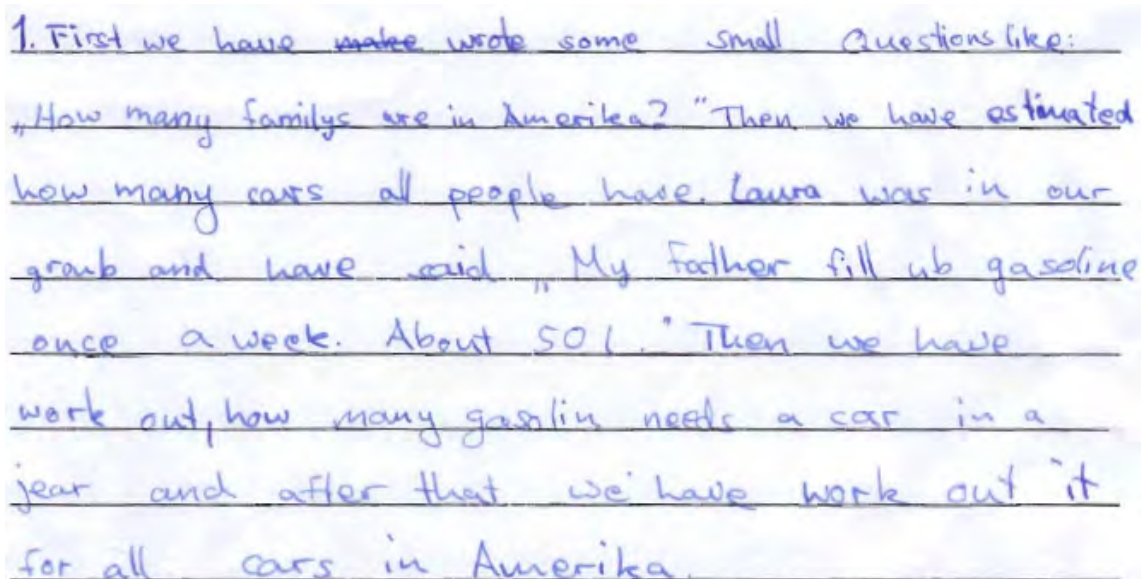 1. First we have make wrote some small Questions like:
„How many familys are in Amerika?" Then we have estimated
how many cars all people have. Laura was in our
groub and have said „My father fill ub gasoline
once a week. About 50 l." Then we have
work out, how many gasolin needs a car in a
jear and after that we have work out it
for all cars in Amerika.